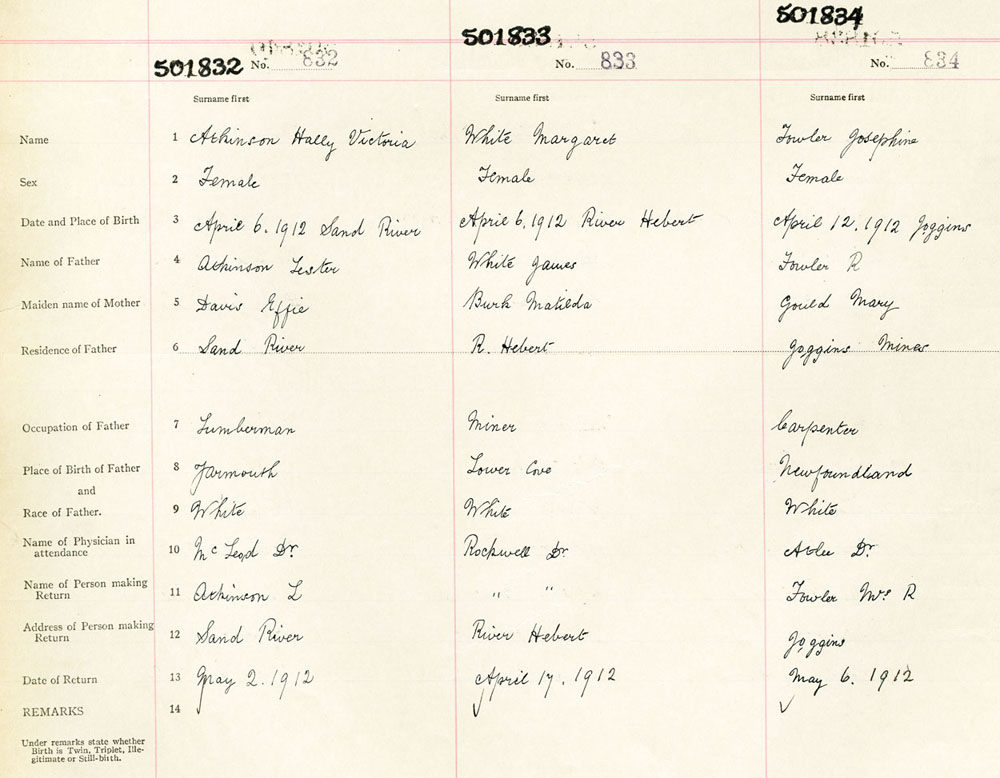 501832 No. 832 501833 No. 833 501834 No. 834
Surname first Surname first Surname first
Name 1 Atkinson Hally Victoria White Margaret Fowler Josephine
Sex 2 Female Female Female
Date and Place of Birth 3 April 6. 1912 Sand River April 6, 1912 River Hebert April 12. 1912 Joggins
Name of Father 4 Atkinson Lester White James Fowler R
Maiden name of Mother 5 Davis Effie Burk Matilda Gould Mary
Residence of Father 6 Sand River R. Hebert Joggins Mines
Occupation of Father 7 Lumberman Miner Carpenter
Place of Birth of Father 8 Yarmouth Lower Cove Newfoundland
and
Race of Father. 9 White White White
Name of Physician in
attendance 10 Mc Leod Dr. Rockwell Dr. Dr.
Name of Person making
Return 11 Atkinson L " " Fowler Mrs R
Address of Person making
Return 12 Sand River River Hebert Joggins
Date of Return 13 May 2. 1912 April 17. 1912 May 6. 1912
REMARKS 14 ✓ ✓ ✓
Under remarks state whether
Birth is Twin, Triplet, Ille-
gitimate or Still-bith.